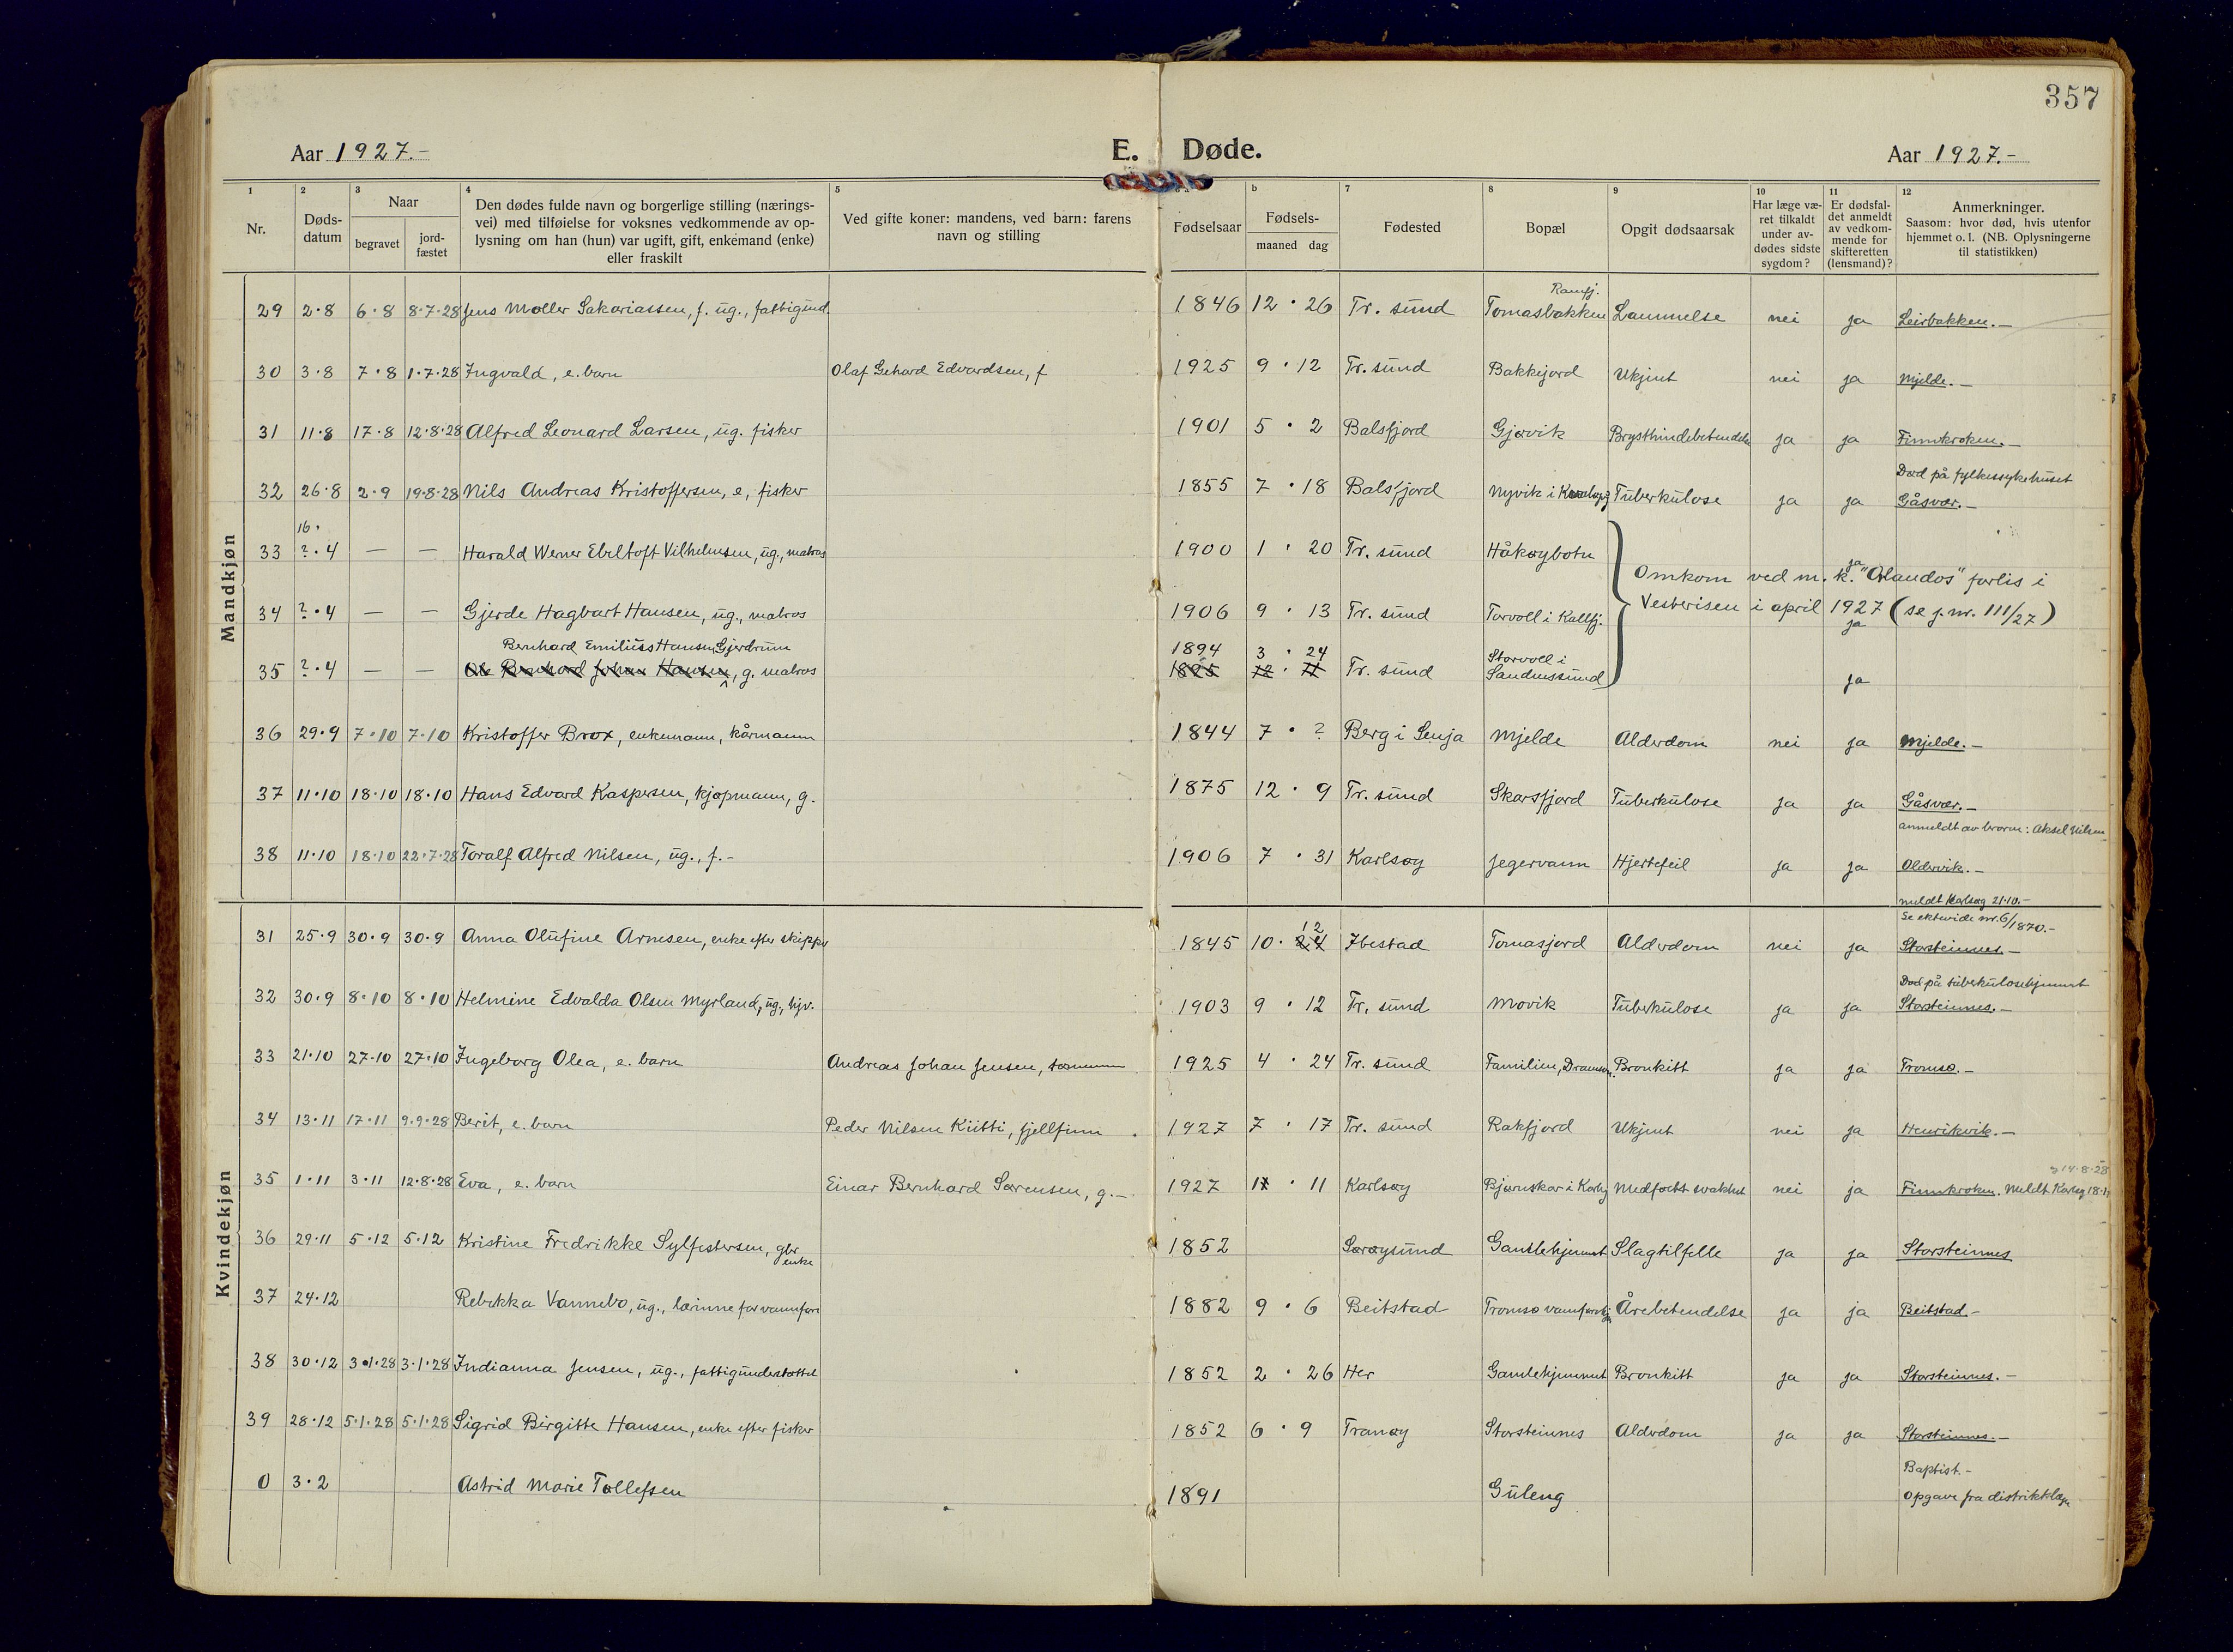 357
Aar 1927.-
E. Døde.
Aar 1927.-
1 2 3 4 5 6 a b 7 8 9 10 11 12
Nr.
Døds-
datum
Naar
begravet
jord-
fæstet
Den dødes fulde navn og borgerlige stilling (nærings-
vei) med tilføielse for voksnes vedkommende av op-
lysning om han (hun) var ugift, gift, enkemand (enke)
eller fraskilt
Ved gifte koner: mandens, ved barn: farens
navn og stilling
Fødselsaar
Fødsels-
maaned dag
Fødested
Bopæl
Opgit dødsaarsak
Har læge væ-
ret tilkaldt
under av-
dødes sidste
sygdom?
Er dødsfal-
det anmeldt
av vedkom-
mende for
skifteretten
(lensmand)?
Anmerkninger.
Saasom: hvor død, hvis utenfor
hjemmet o. l. (NB. Oplysningerne
til statistikken)
Mandkjøn
Ramfj.
29 2·8 6·8 8·7·28 Jens Møller Sakariassen, f. ug., fattigund. 1846 12·26 Tr. sund Tomasbakken Lammelse nei ja Leirbakken.-
30 3·8 7·8 1·7·28 Ingvald, e. barn Olaf Gehard Edvardsen, f 1925 9·12 Tr. sund Bakkejord Ukjent nei ja Mjelde.-
31 11·8 17·8 12·8·28 Alfred Leonard Larsen, ug. fisker 1901 5·2 Balsfjord Gjøvik Brysthindebetendelse ja ja Finnkroken.-
Død på fylkessykehuset
32 26·8 2·9 19·8·28 Nils Andreas Kristoffersen, e, fisker 1855 7·18 Balsfjord Nyvik i Tuberkulose ja ja Gåsvær.-
16·
33 ?·4 — — Harald Werner Ebeltoft Vilhelmsen, ug., matros 1900 1·20 Tr. sund Håkøybotn
Omkom ved m. k. "Olandos" forlis i
ja
34 ?·4 — — Gjerde Hagbart Hansen, ug., matros 1906 9·13 Tr. sund Torvoll i Kallfj.
Vesterisen i april 1927 (se j. nr. 111/27)
ja
Bernhard Emilius Hansen Gjerdrum 1894 3·24 Storvoll i
35 ?·4 — — Ole Bernhard Johan Hansen, g. matros 1895 12·11 Tr. sund Sandnessund ja
36 29·9 7·10 7·10 Kristoffer Brox, enkemann, kårmann 1844 7·? Berg i Senja Mjelde Alderdom nei ja Mjelde.-
37 11·10 18·10 18·10 Hans Edvard Kaspersen, kjøpmann, g. 1875 12·9 Tr. sund Skarsfjord Tuberkulose ja ja Gåsvær.-
anmeldt av broren: Aksel Nilsen
38 11·10 18·10 22·7·28 Toralf Alfred Nilsen, ug., f.- 1906 7·31 Karlsøy Jegervann Hjertefeil ja ja Oldervik.-
meldt Karlsøy 21·10.-
Kvindekjøn
12 Se nr. 6/1870.-
31 25·9 30·9 30·9 Anna Olufine Arnesen, enke efter skipper 1845 10·24 Ibestad Tomasjord Alderdom nei ja Storsteinnes.-
Død på tuberkulosehjemmet
32 30·9 8·10 8·10 Helmine Edvalda Olsen Myrland, ug., hjv. 1903 9·12 Tr. sund Movik Tuberkulose ja ja Storsteinnes.-
33 21·10 27·10 27·10 Ingeborg Olea, e. barn Andreas Johan Jensen, 1925 4·24 Tr. sund Familien, Bronkitt ja ja Tromsø.-
34 13·11 17·11 9·9·28 Berit, e. barn Peder Nilsen Kiitti, fjellfinn 1927 7·17 Tr. sund Rakfjord Ukjent nei ja Henrikvik.-
14·8·28
35 1·11 3·11 12·8·28 Eva, e. barn Einar Bernhard Sørensen, g.- 1927 11 Karlsøy Bjørnskar i Karls. Medfødt svakhet nei ja Finnkroken. Meldt Karlsøy 18·11
36 29·11 5·12 5·12 Kristine Fredrikke Sylfestersen, gbr. 1852 Sørøysund Gamlehjemmet Slagtilfelle ja ja Storsteinnes
enke
37 24·12 Rebekka Vannebo, ug., lærinne for vannføre 1882 9·6 Beitstad Tromsø vanførehj. Årebetendelse ja ja Beitstad.-
38 30·12 3·1·28 3·1·28 Indianna Jensen, ug., fattigunderstøttet 1852 2·26 Her Gamlehjemmet Bronkitt ja ja Storsteinnes.-
39 28·12 5·1·28 5·1·28 Sigrid Birgitte Hansen, enke efter fisker 1852 6·9 Tranøy Storsteinnes Alderdom ja ja Storsteinnes.-
Baptist.-
0 3·2 Astrid Marie Tollefsen 1891 Guleng Opgave fra distriktlæge